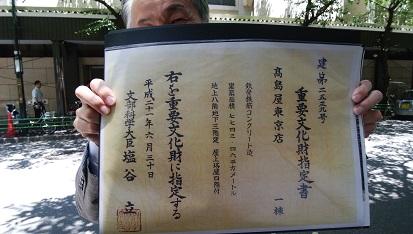 建第二五五九号
重要文化財指定書
髙島屋東京店 一棟
鉄骨鉄筋コンクリート造
地上八階地下三階建 屋上塔屋四階付
右を重要文化財に指定する
平成二十一年六月三十日
文部科学大臣 塩谷 立